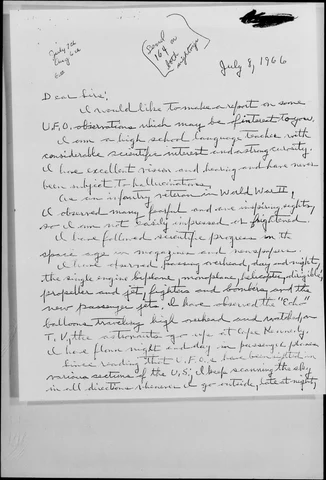 July 7th
Aug 6th
6th
Send
164 or
both
sightings
July 8, 1966
Dear Sirs:
I would like to make a report on some
U.F.O. observations which may be of interest to you.
I am a high school language teacher with
considerable scientific interest and a strong curiosity.
I have excellent vision and hearing and have never
been subject to hallucinations.
As an infantry veteran in World War II,
I observed many fearful and awe inspiring sights,
so I am not easily impressed or frightened.
I have followed scientific progress in the
space age in magazines and newspapers.
I have observed passing overhead, day and night,
the single engine biplane, monoplane, helicopter, dirigible,
propeller and jet fighters and bombers, and the
new passenger jets. I have observed the "Echo"
balloons traveling high overhead and watched on
T.V., the astronauts go up at Cape Kennedy.
I have flown night and day in passenger planes.
Since reading that U.F.O.s have been sighted in
various sections of the U.S., I keep scanning the sky
in all directions whenever I go outside, late at night,